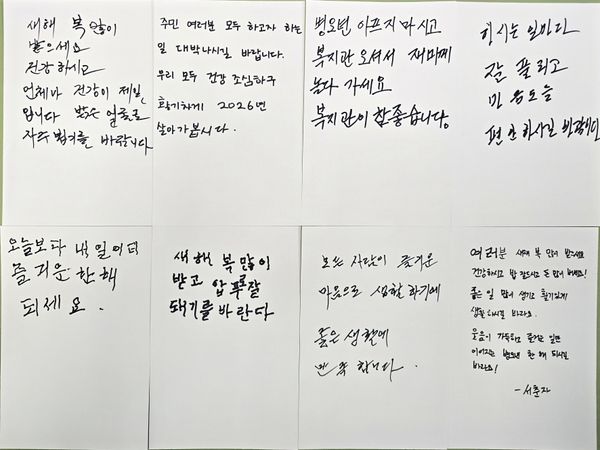 새해 복 많이
받으세요
건강하시고
언제나 건강이 제일
입니다 밝은 얼굴로
자주 뵙기를 바랍니다
주민 여러분 모두 하고자 하는
일 대박나시길 바랍니다.
우리 모두 건강 조심하구
활기차게 2026년
살아가봅시다.
병오년 아프지 마시고
복지관 오셔서 재미께
놀다 가세요
복지관이 참 좋습니다.
하시는 일마다
잘 풀리고
마음도 늘
편안하시길 바랍니다
오늘보다 내일이 더
즐거운 한해
되세요.
새해 복 많이
받고 앞
돼기를 바란다
모든 사람이 즐거운
마음으로 생활하기에
좋은 생활에
만족합니다.
여러분 새해 복 많이 받으세요
건강하시고 밥 잘드시고 돈 많이 버세요!
좋은 일 많이 생기고 활기있게
생활하시길 바라요.
웃음이 가득하고 즐거운 일만
이어지는 병오년 한 해 되시길
바라요!
-서춘자